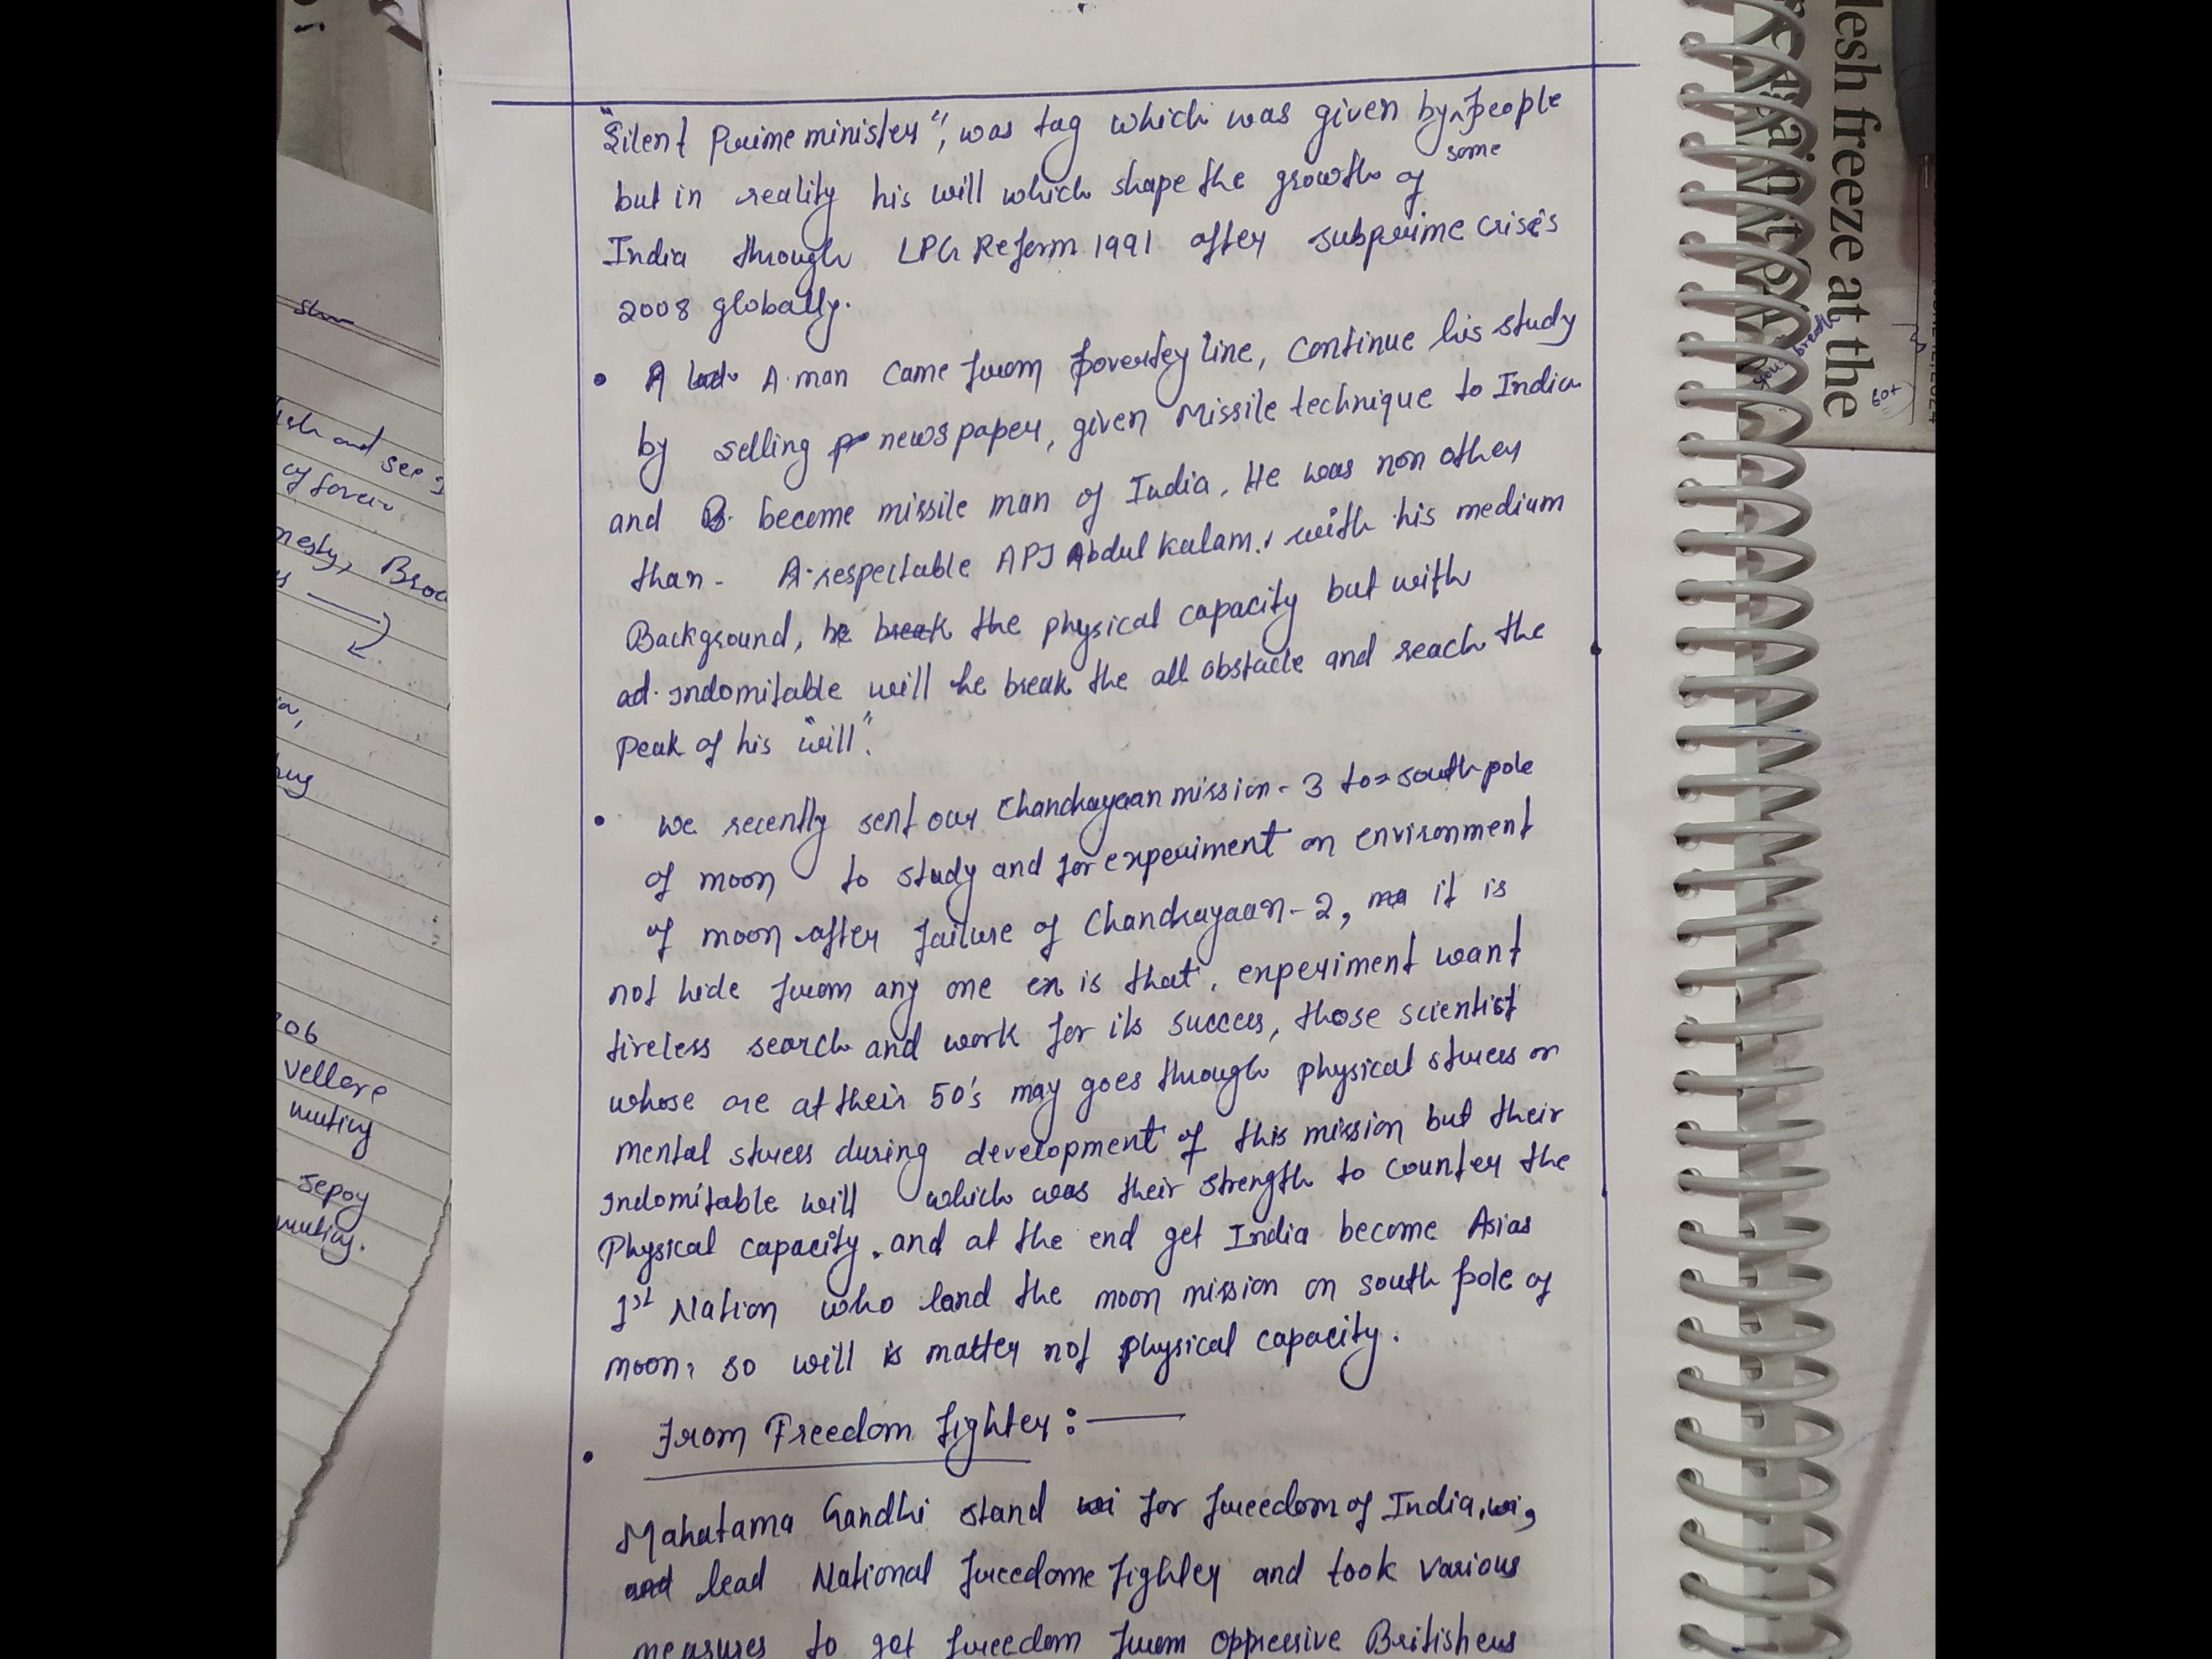 "Silent Prime minister", was tag which was given by ^ people
some
but in reality his will which shape the growth of
India through LPG Reform 1991 after subprime crises
2008 globally.
• A A man came from poverty line, continue his study
by selling newspaper, given Missile technique to India
and B. become missile man of India. He was non other
than - A. respectable APJ Abdul Kalam., with his medium
Background, he break the physical capacity but with
ad. indomitable will he break the all obstacle and reach the
peak of his "will".
• we recently sent our Chandrayaan mission - 3 to south pole
of moon to study and for experiment on environment
of moon after failure of Chandrayaan - 2, it is
not hide from any one ex is that, experiment want
tireless search and work for its success, those scientist
whose are at their 50's may goes through physical stress or
mental stress during development of this mission but their
indomitable will which was their strength to counter the
Physical capacity. and at the end get India become Asias
1st Nation who land the moon mission on south pole of
moon, so will is matter not physical capacity.
• From Freedom fighter : —
Mahatama Gandhi stand for freedom of India,
and lead National freedome fighter and took various
measures to get freedom from oppressive Britishers
lesh freeze at the
and see
nesty, Broa
206
vellore
mutiny
- sepoy
mutiny.